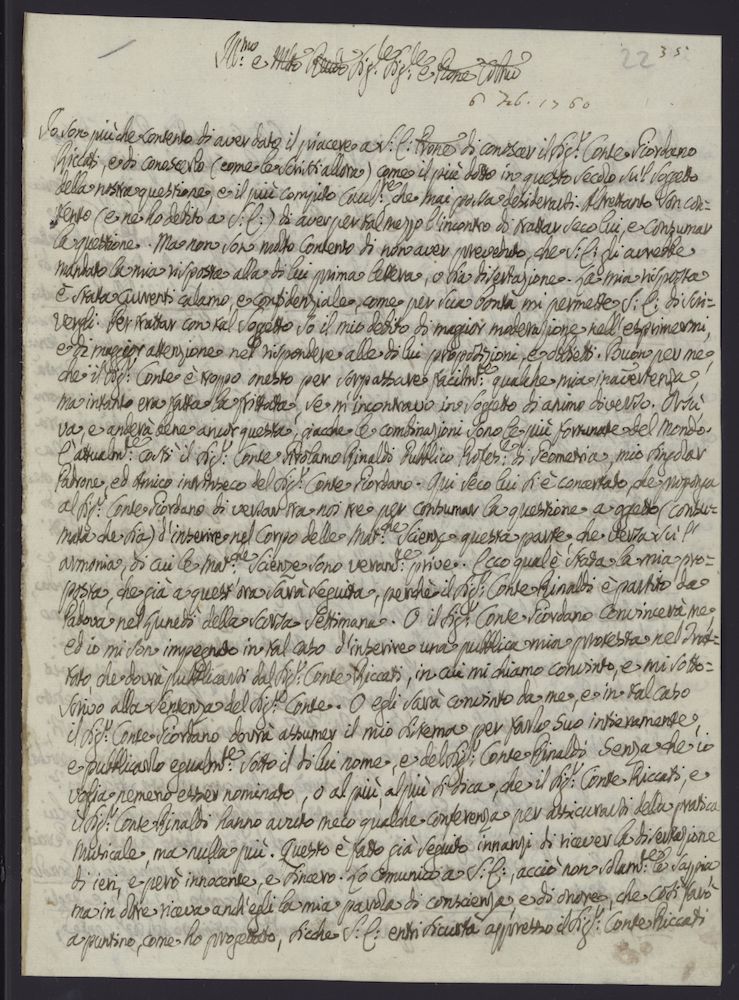 22 35
Ill.mo e Sig.r Sig.r e Prone
6 Feb. 1760
Io son più che contento di aver dato il piacere a S.E. Prone di conoscer il Sig.r Conte Giordano
Riccati, e di conoscerlo (come le scrissi allora) come il più dotto in questo secolo su 'l soggetto
della nostra questione, e il più compito che mai possa desiderarsi. Altrettanto son con=
tento (e ne ho debito a S.E.) di aver per tal mezzo l'incontro di trattar seco lui, e consumar
la questione. Ma non son molto contento di non aver preveduto, che S.E. gli avrebbe
mandato la mia risposta alla di lui prima lettera, o sia disertazione. La mia risposta
è stata currenti calamo, e confidenziale, come per sua bontà mi permette S.E. di scri=
vergli. Per trattar con tal soggetto so il mio debito di magior moderazione nell'esprimermi,
e di magior attenzione nel rispondere alle di lui proposizioni, e obbietti. Buon per me,
che il Sig.r Conte è troppo onesto per sorpassare facilm.te qualche mia inavertenza,
ma intanto era fatta la frittata, se m'incontravo in soggetto di animo diverso. Orsù
va e anderà bene ancor questa, giacche le combinazioni sono le più fortunate del Mondo.
È attualm.te costì il Sig.r Conte Girolamo Rinaldi Pubblico Profes.r di Geometria, mio singolar
Padrone, ed Amico intrinseco del Sig.r Conte Giordano. Qui seco lui si è concertato, che proponga
al Sig.r Conte Giordano di versar tra noi tre per consumar la questione a ogetto (consu=
mata che sia) d'inserire nel Corpo delle Mat.che Scienze questa parte che versa su l'
armonia, di cui le Mat.che Scienze sono veram.te prive. Ecco qual è stata la mia pro=
posta, che già a quest'ora sarà seguita, perché il Sig.r Conte Rinaldi è partito da
Padova nel Lunedì della scorsa settimana. O il Sig.r Conte Giordano convincerà me,
ed io mi son impegnato in tal caso d'inserire una pubblica mia protesta nel Trat=
tato, che dovrà pubblicarsi dal Sig.r Conte Riccati, in cui mi chiamo convinto, e mi sotto=
scrivo alla sentenza del Sig.r Conte. O egli sarà convinto da me, e in tal caso
il Sig.r Conte Giordano dovrà assumer il mio sistema per farlo suo intieramente,
e pubblicarlo egualm.te sotto il di lui nome, e del Sig.r Conte Rinaldi senza che io
voglia nemeno esser nominato, o al più, al più si dica, che il Sig.r Conte Riccati, e
il Sig.r Conte Rinaldi hanno avuto meco qualche conferenza per assicurarsi della pratica
Musicale, ma nulla più. Questo è fatto già seguito innanzi di ricever la disertazione
di ieri, e però innocente, e sincero. Lo comunico a S.E., acciò non solam.te lo sappia
ma in oltre riceva anch'egli la mia parola di conscienza, e di onore, che così farò
a puntino, come ho progettato, sicche S.E. entri sicurtà appresso il Sig.r Conte Riccati